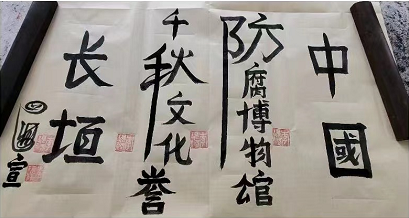 中國
防腐博物館
千秋文化誉
长垣
宣